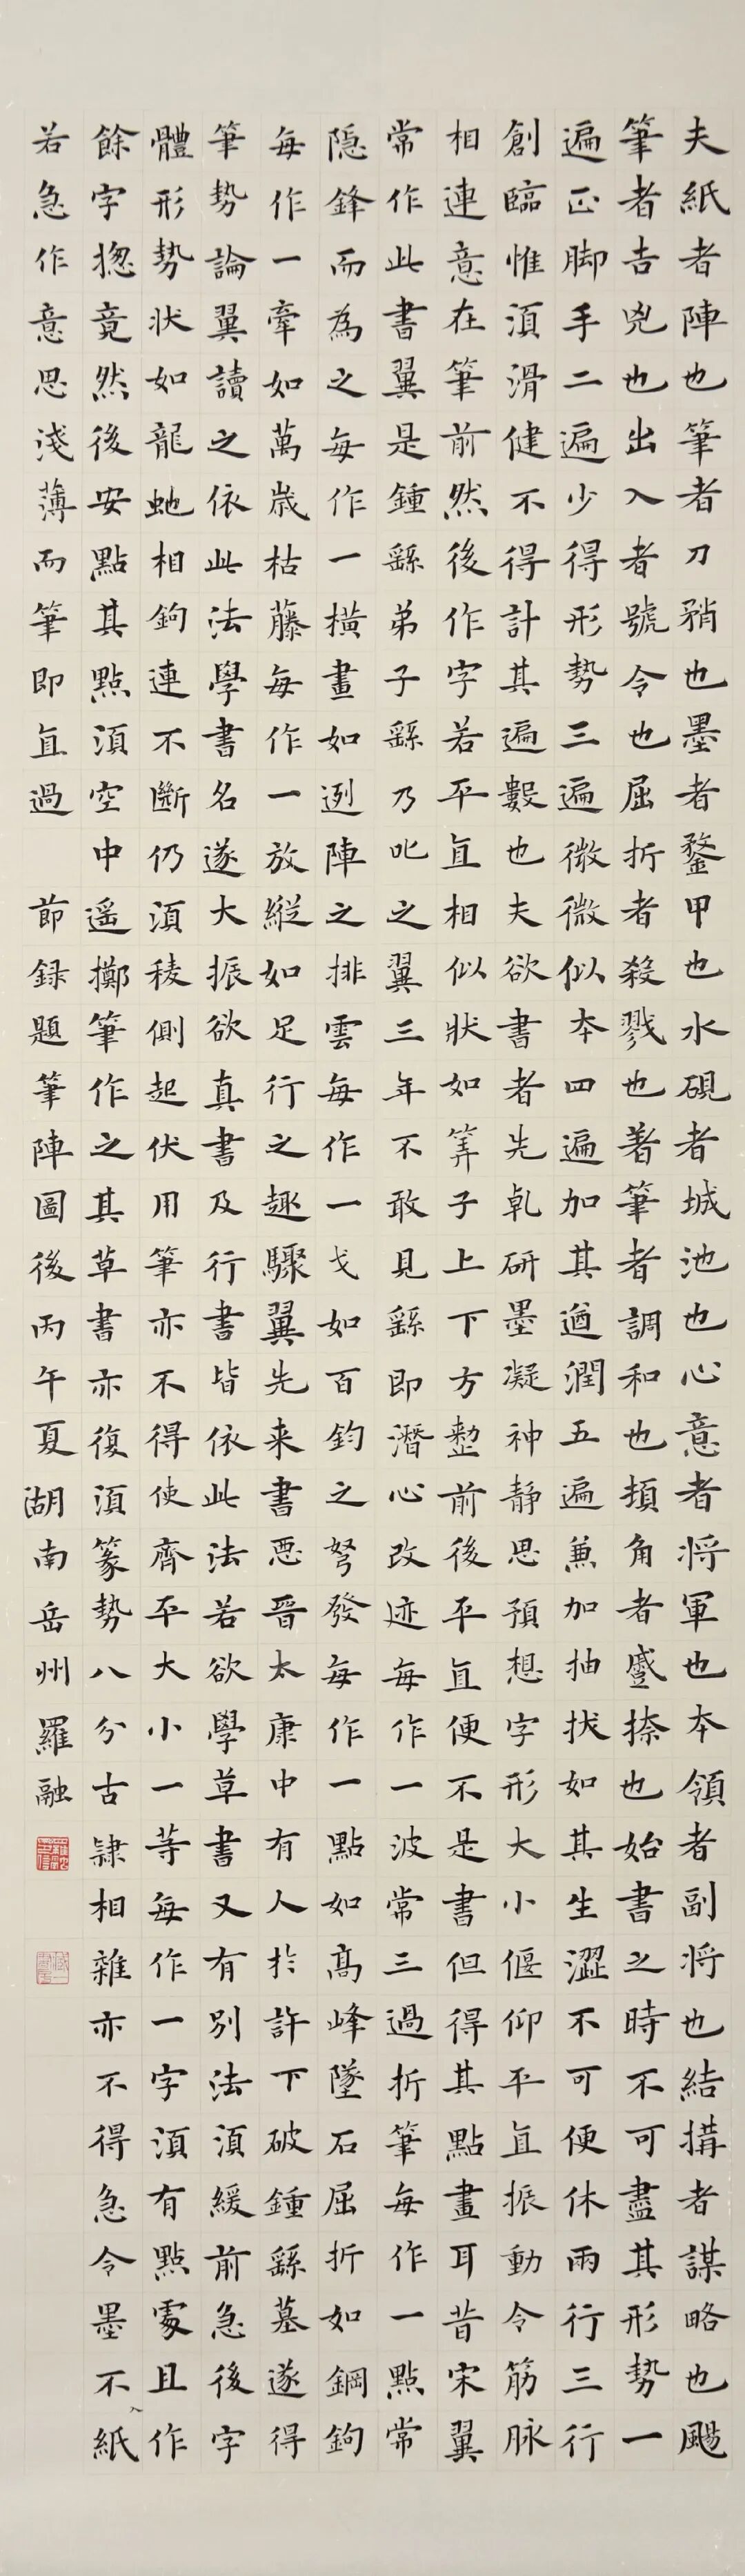 夫紙者陣也筆者刀矟也墨者鍪甲也水硯者城池也心意者将軍也本領者副将也結搆者謀略也颺
筆者吉兇也出入者號令也屈折者殺戮也著筆者調和也頓角者蹙捺也始書之時不可盡其形勢一
遍正脚手二遍少得形勢三遍微微似本四遍加其遒潤五遍兼加抽拔如其生澀不可便休兩行三行
創臨惟須滑健不得計其遍數也夫欲書者先乹研墨凝神静思預想字形大小偃仰平直振動令筋脉
相連意在筆前然後作字若平直相似狀如筭子上下方整前後平直便不是書但得其點畫耳昔宋翼
常作此書翼是鍾繇弟子繇乃叱之翼三年不敢見繇即潛心改迹每作一波常三過折筆每作一點常
隐鋒而為之每作一横畫如迾陣之排雲每作一戈如百鈞之弩發每作一點如高峰墜石屈折如鋼鉤
每作一牽如萬歲枯藤每作一放縱如足行之趣驟翼先来書惡晉太康中有人於許下破鍾繇墓遂得
筆勢論翼讀之依此法學書名遂大振欲真書及行書皆依此法若欲學草書又有别法須緩前急後字
體形勢状如龍虵相鉤連不斷仍須稜側起伏用筆亦不得使齊平大小一等每作一字須有點處且作
餘字揔竟然後安點其點須空中遥擲筆作之其草書亦復須篆勢八分古隸相雜亦不得急令墨不紙
若急作意思淺薄而筆即直過 節録題筆陣圖後丙午夏湖南岳州羅融